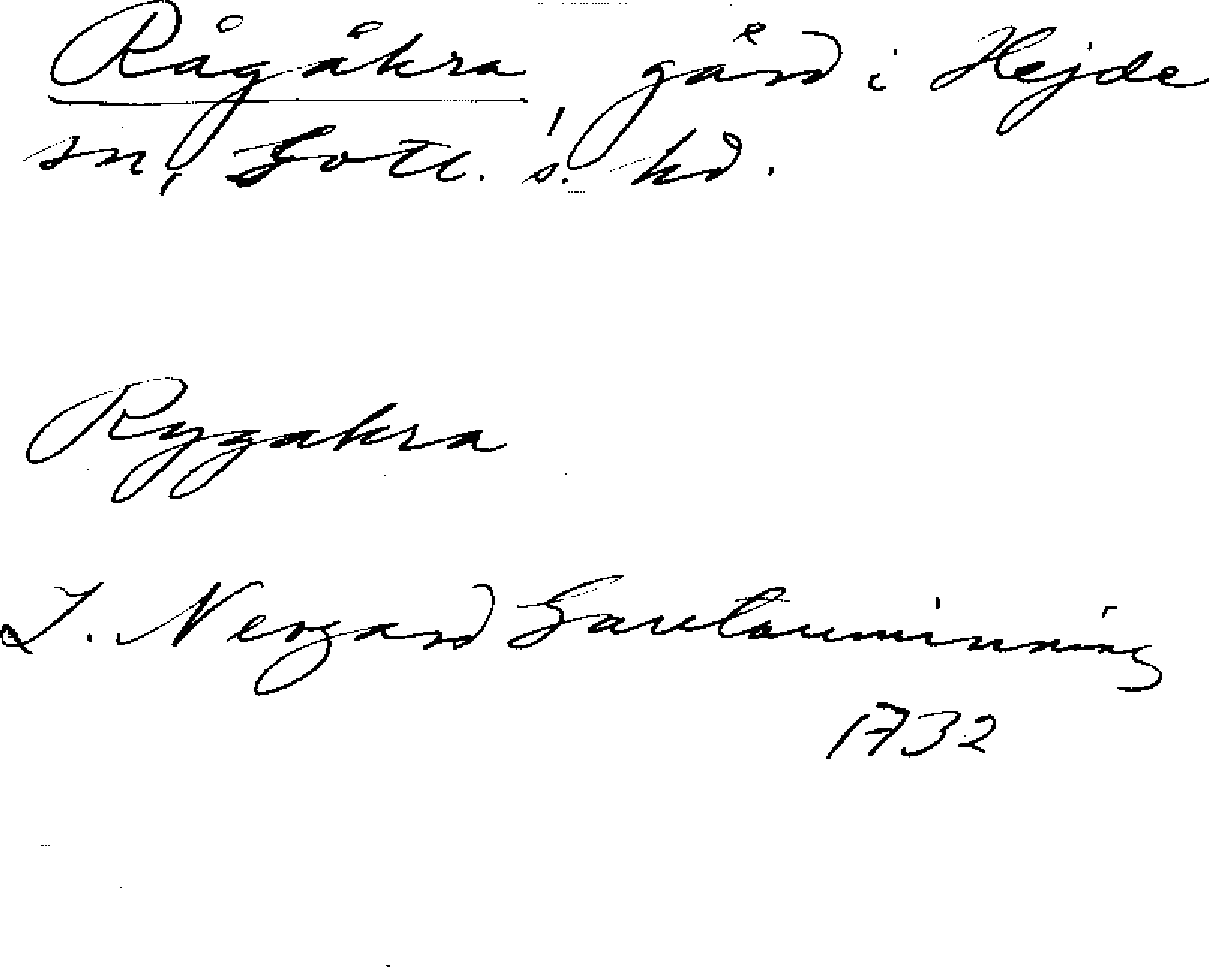 Rågåkra, gård i Hejde
sn, Gotl. s. hd.
Rygakra
J. Nergard Gautauminning
1732